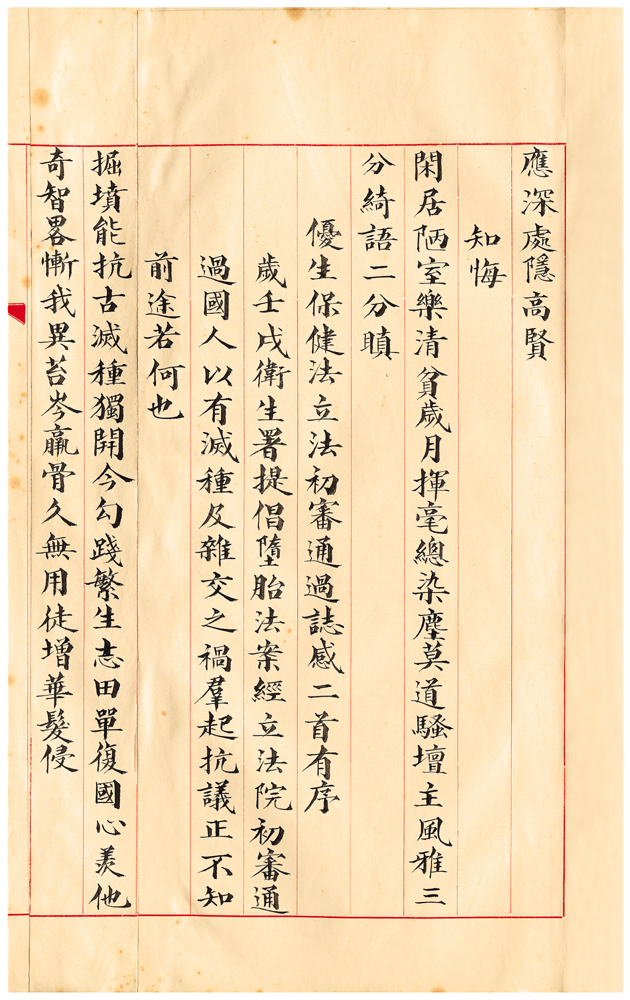 應深處隱高賢
知悔
閑居陋室樂清貧歲月揮毫總染塵莫道騷壇主風雅三
分綺語二分瞋
優生保健法立法初審通過誌感二首有序
歲壬戌衛生署提倡墮胎法案經立法院初審通
過國人以有滅種及雜交之禍羣起抗議正不知
前途若何也
掘墳能抗古滅種獨開今勾踐繁生志田單復國心羨他
奇智畧慚我異苔岑羸骨久無用徒增華髮侵